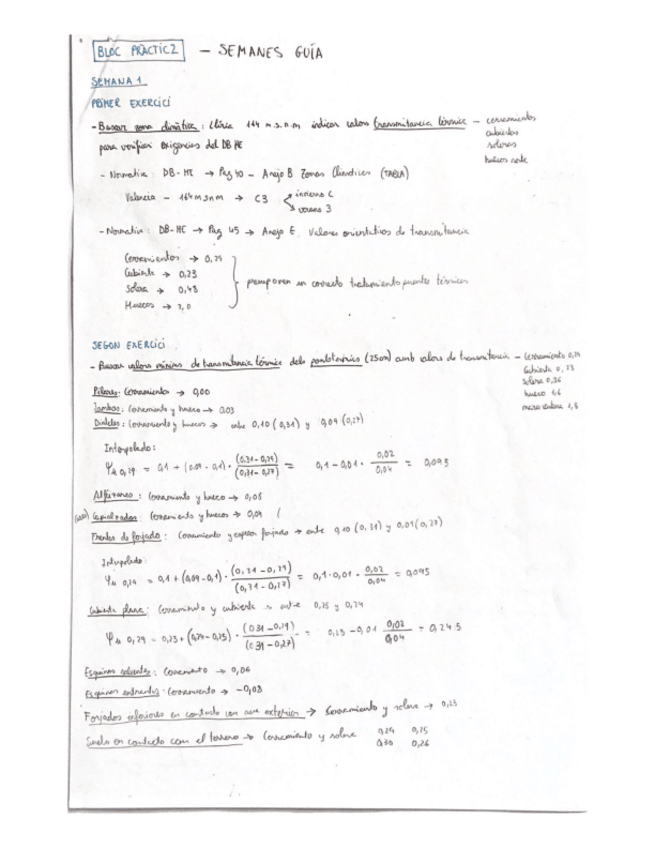 BLOC PRÀCTIC 2 — SEMANES GUÍA
SEMANA 1
PRIMER EXERCICI
- Buscar zona climática: Llíria 164 m.s.n.m indicar valors transmitancia térmica — cerramientos
cubiertas
soleras
huecos
para verificar exigencias del DB HE
- Normativa: DB-HE → Pág 40 - Anejo B Zonas Climáticas (TABLA)
Valencia - 164 m snm → C3
invierno C
verano 3
- Normativa: DB-HE → Pág 45 → Anejo E Valores orientativos de transmitancia
Cerramientos → 0,29
Cubierta → 0,23
Solera → 0,48
Huecos → 2,0
correcto tratamiento puentes térmicos
SEGON EXERCICI
- Buscar valores mínimos de transmitancia térmica dels (25cm) amb valors de transmitancia — Cerramiento 0,29
Cubierta 0,23
solera 0,36
hueco 1.6
1,8
Pilares: Cerramiento → 0,00
Jambas: Cerramiento y hueco → 0.03
Dinteles: Cerramiento y huecos → entre 0,10 (0,31) y 0,09 (0,27)
Interpolado:
Ψ 0,29 = 0,1 + (0.09 - 0,1) · (0,31 - 0,29) / (0,31 - 0,27) = 0,1 - 0,01 · 0,02 / 0,04 = 0,095
Alféizares: Cerramiento y hueco → 0,08
Capialzados: Cerramiento y huecos → 0,09
Frentes de forjado: Cerramiento y espesor forjado → entre 0,10 (0,31) y 0,09 (0,27)
Interpolado:
Ψ 0,29 = 0,1 + (0,09 - 0,1) · (0,31 - 0,29) / (0,31 - 0,27) = 0,1 · 0,01 · 0,02 / 0,04 = 0,095
Cubierta plana: Cerramiento y cubierta → entre 0,25 y 0,24
Ψ 0,29 = 0,25 + (0,24 - 0,25) · (0,31 - 0,29) / (0,31 - 0,27) = 0,25 - 0,01 0,02 / 0,04 = 0,245
Esquinas salientes: Cerramiento → 0,06
Esquinas entrantes: Cerramiento → -0,08
Forjados inferiores en contacto con aire exterior → Cerramiento y solera → 0,23
Suelo en contacto con el terreno → Cerramiento y solera 0,24 0,25
0,30 0,26